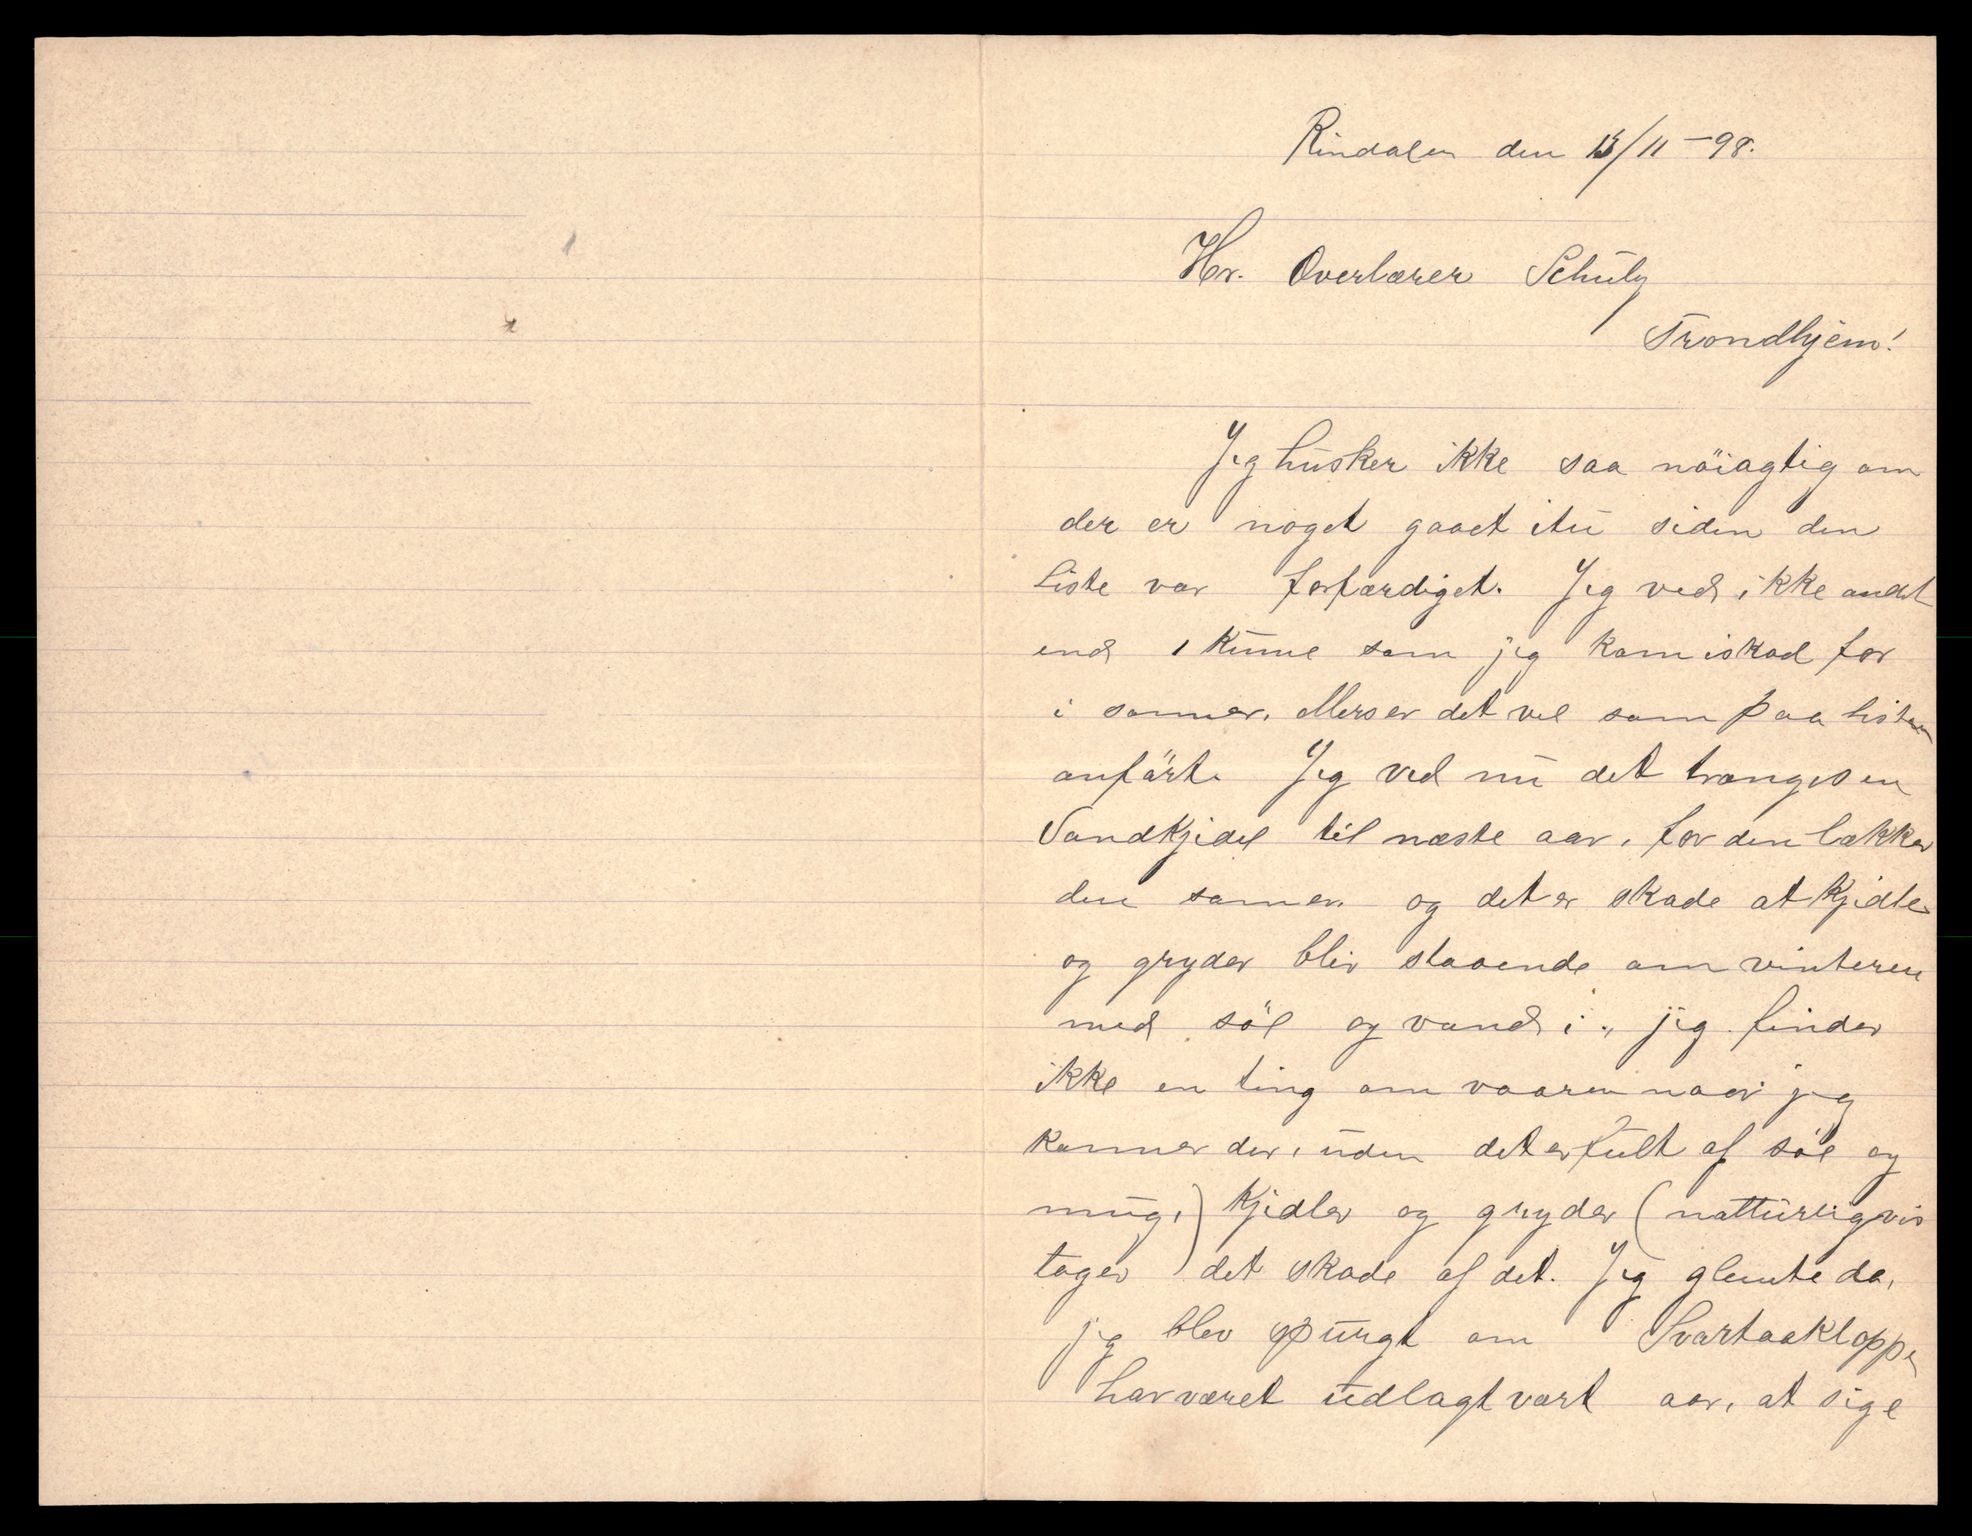 Rindalen den 13/11 -98.
Hr. Overlærer Schulz
Trondhjem!
Jeg husker ikke saa nöiagtig om
der er noget gaaet itu siden den
liste var forfærdiget. Jeg ved ikke andet
end 1 kumme som jeg kom i skad for
i sommer. ellers er det vel som paa listen
anfört. Jeg ved nu det trænges en
Vandkjedel til næste aar, for den lækker
den sommer og det er skade at kjedler
og gryder blir staaende om vinteren
med söl og vand i, jeg finder
ikke en ting om vaaren naar jeg
kommer der, uden det er fult af söl og
mug,) kjedler og gryder (natturligvis
tager det skade af det. Jeg glemte da,
jeg blev spurgt om Svartaakloppen
har været udlagt vort aar, at sige